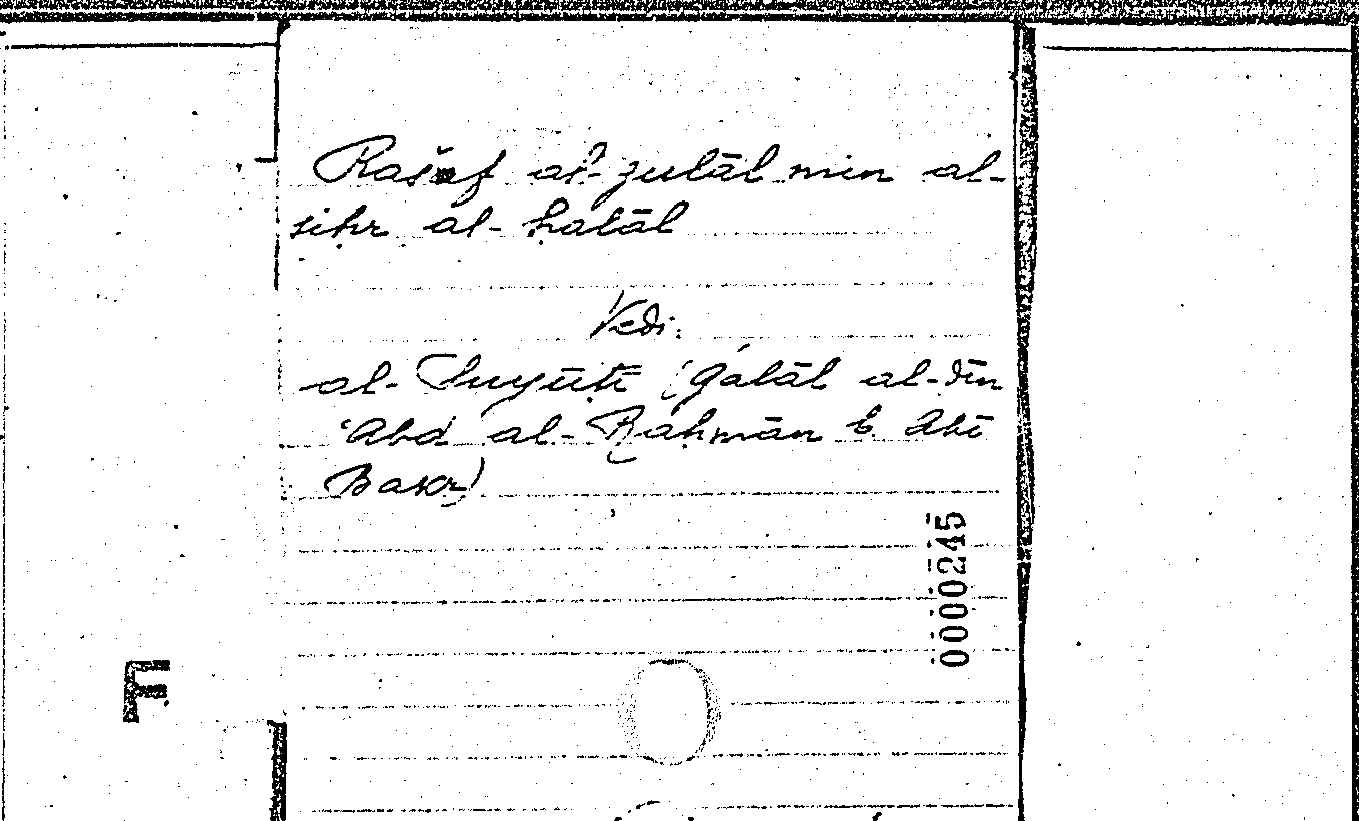 Rašf al-zulāl min al-
siḥr al-ḥalāl
Vedi:
al-Suyūṭī (Ǧalāl al-dīn
ʿAbd al-Raḥmān b. Abī
Bakr)
0000245
F